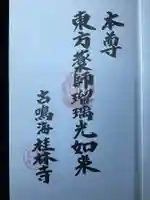 本尊
東方藥師瑠璃光如来
古鳴海桂林寺